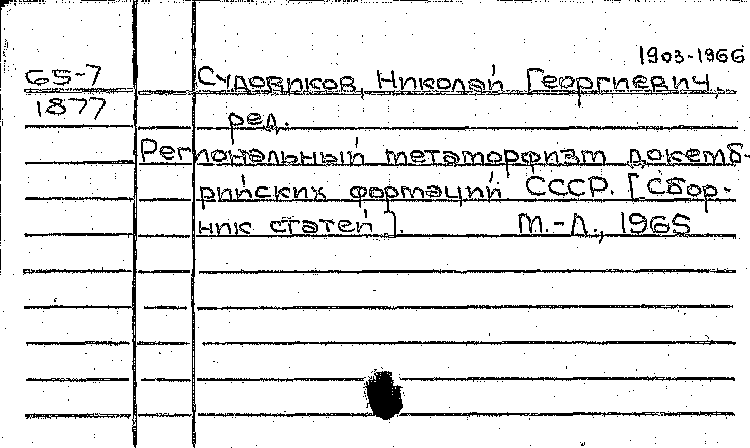 1903-1966
65-7 Судовиков, Николай Георгиевич,
1877
ред.
Региональный метаморфизм докемб-
рийских формаций СССР. [Сбор-
ник статей]. М.-Л., 1965